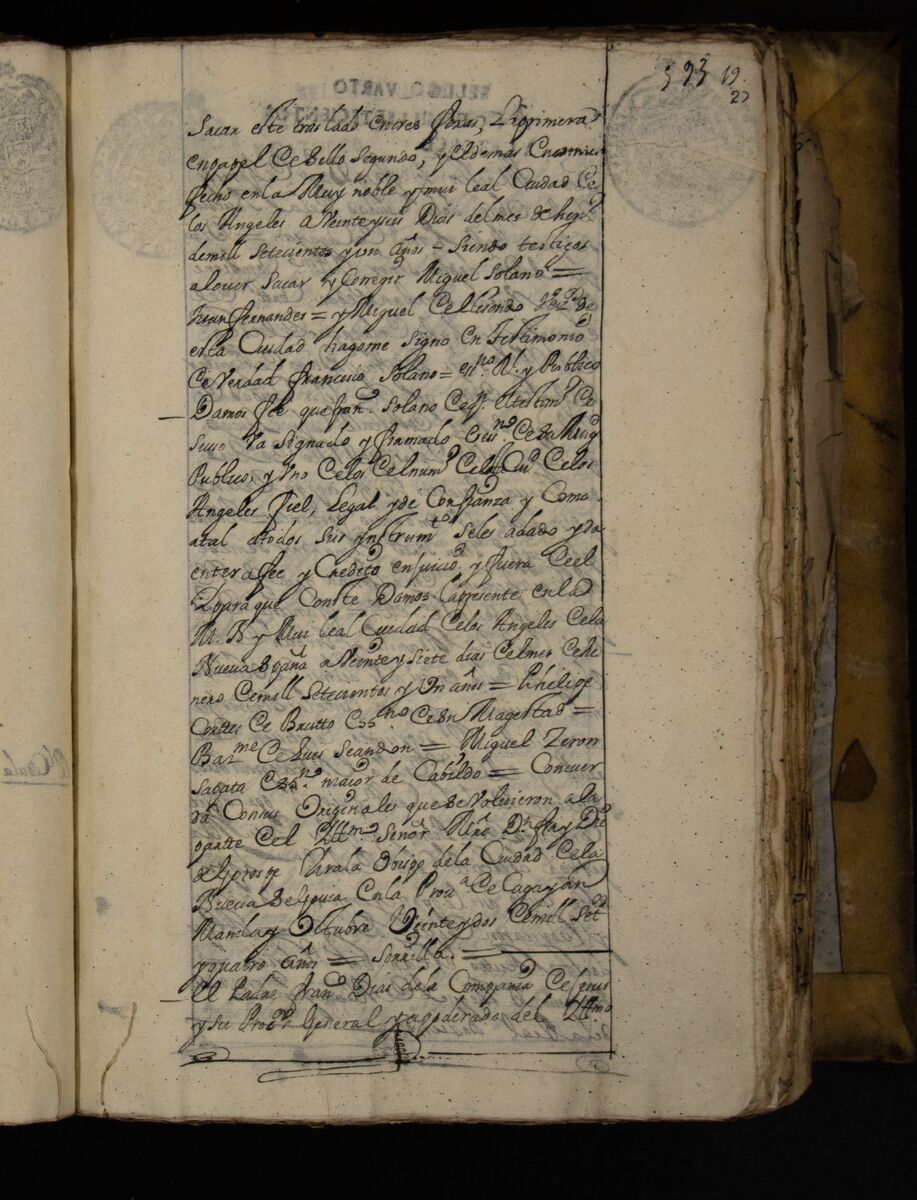 593 19.
27
Sacar este traslado en tres foxas, La primera
en papel de Sello Segundo, y el demas
fecho en la Muy noble y mui leal Ciudad de
los Angeles a Veinte y seis Dias del mes de hen.º
de mill Setecientos y un años = siendo testigos
alover Sacar y Corregir Miguel Solano =
Juan fernandes = y Miguel de Elisondo de
esta Ciudad hagome Signo En Testimonio
de Verdad francisco Solano = ess.no Rl. y Publico
Damos fee que fran.co Solano de q.n el testim.º de
suso va signado y firmado es ess.no de su Mag.d
Publico, y Uno de los del num.º de la Ciu.d de los
Angeles fiel, Legal y de Confianza y Como
atal atodos sus ynstrum.tos seles adado y da
entera fee y Credito en juicio y fuera de el
Y para que Conste Damos la presente en la
M. N y Mui leal Ciudad de los Angeles de la
Nueva españa a Veinte y siete dias del mes de he
nero de mill Setecientos y Un años = Phelipe
Conttes de Brutto Ess.no de su Magestad =
Bar.me de Luis Scandon = Miguel Zeron
Sapata Ess.no maior de Cabildo = Concuer
da Con sus Originales que se volvieron a la
parte del Ill.mo Señor Mro D.n fray
de Gorospe Yrala Obispo de la Ciudad de la
Nueva Segovia En la Prov.a de Cagayan
Manila y Octubre Veinte y dos de mill Set.os
y quatro años = Sorrilla. =
El Padre fran.co Dias de la Compania de Jesus
y su Proc.or General y apoderado del Ill.mo